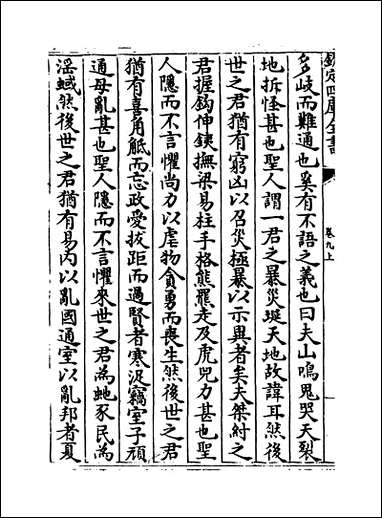 欽定四庫全書
卷九上
多歧而難通也奚有不語之義也曰夫山鳴鬼哭天裂
地拆怪甚也聖人謂一君之暴災埏天地故諱耳然後
世之君猶有窮凶以召災極暴以示異者矣夫桀紂之
君握鈎伸鐵撫梁易柱手格熊羆走及虎兕力甚也聖
人隱而不言懼尚力以虐物貪勇而喪生然後世之君
猶有喜角觝而忘政愛拔距而過賢者寒浞竊室子頑
通母亂甚也聖人隱而不言懼來世之君為蛇豕民為
淫蜮然後世之君猶有易內以亂國通室以亂邦者夏